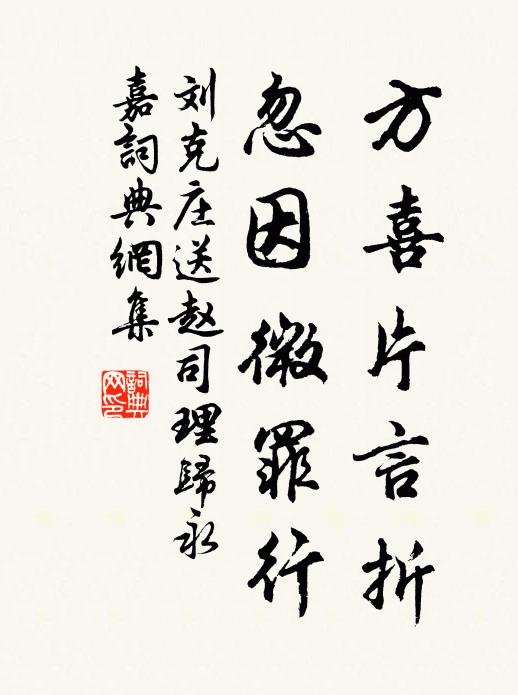 方喜片言折
忽因微罪行
刘克庄送赵司理歸永
嘉詞典網集
詞典网印